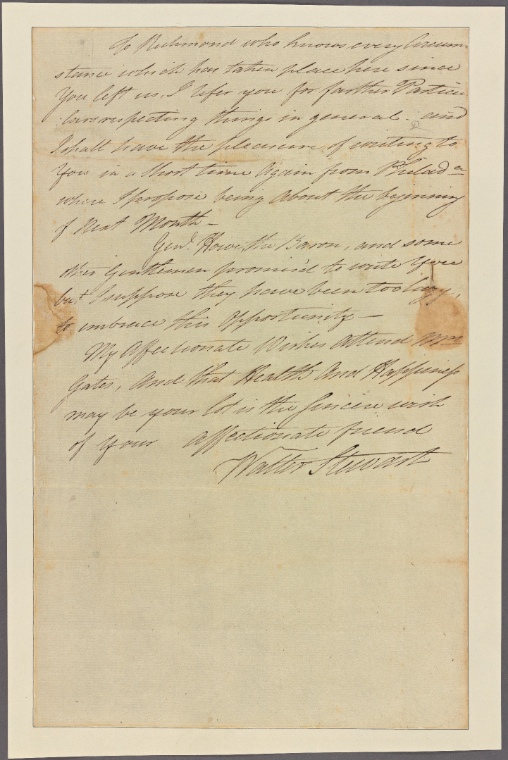 To Richmond who knows every Circum-
stance which has taken place here since
You left us, I refer you for farther Particu
lars respecting things in general. and
I shall have the pleasure of writing to
You in a short time Again from Philada
where I propose being about the begining
of Next Month –
Genl. Howe, the Baron, and some
other Gentlemen promised to write You
but I suppose they have been too lazy,
to embrace this Opportunity –
My Affectionate Wishes attend Mrs
Gates, And that Health And Happiness
may be your lot is the Sincere wish
of Your affectionate friend
Walter Stewart